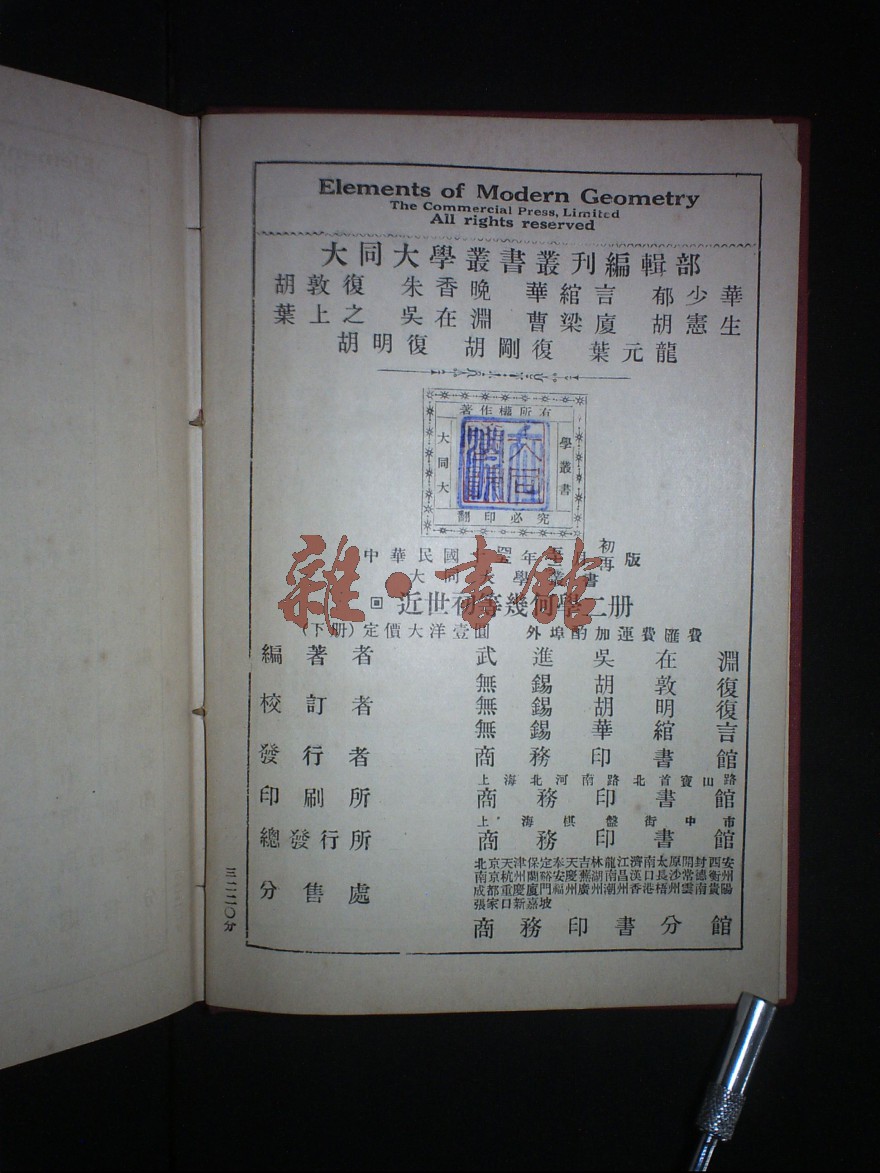 Elements of Modern Geometry
The Commercial Press, Limited
All rights reserved
大同大學叢書叢刊編輯部
胡敦復 朱香晚 華綰言 郁少華
葉上之 吳在淵 曹梁廈 胡憲生
胡明復 胡剛復 葉元龍
著作權所有
大同大
學叢書
翻印必究
中華民國 年 月 初再版
大同大學叢書
近世初等幾何學二册
(下册)定價大洋壹圓 外埠酌加運費匯費
編著者 武進吳在淵
無錫胡敦復
校訂者 無錫胡明復
無錫華綰言
發行者 商務印書館
上海北河南路北首寶山路
印刷所 商務印書館
上海棋盤街中市
總發行所 商務印書館
北京天津保定奉天吉林龍江濟南太原開封西安
南京杭州蘭谿安慶蕪湖南昌漢口長沙常德衡州
分售處 成都重慶廈門福州廣州潮州香港梧州雲南貴陽
張家口新嘉坡
商務印書分館
三二二〇分
雜·書館